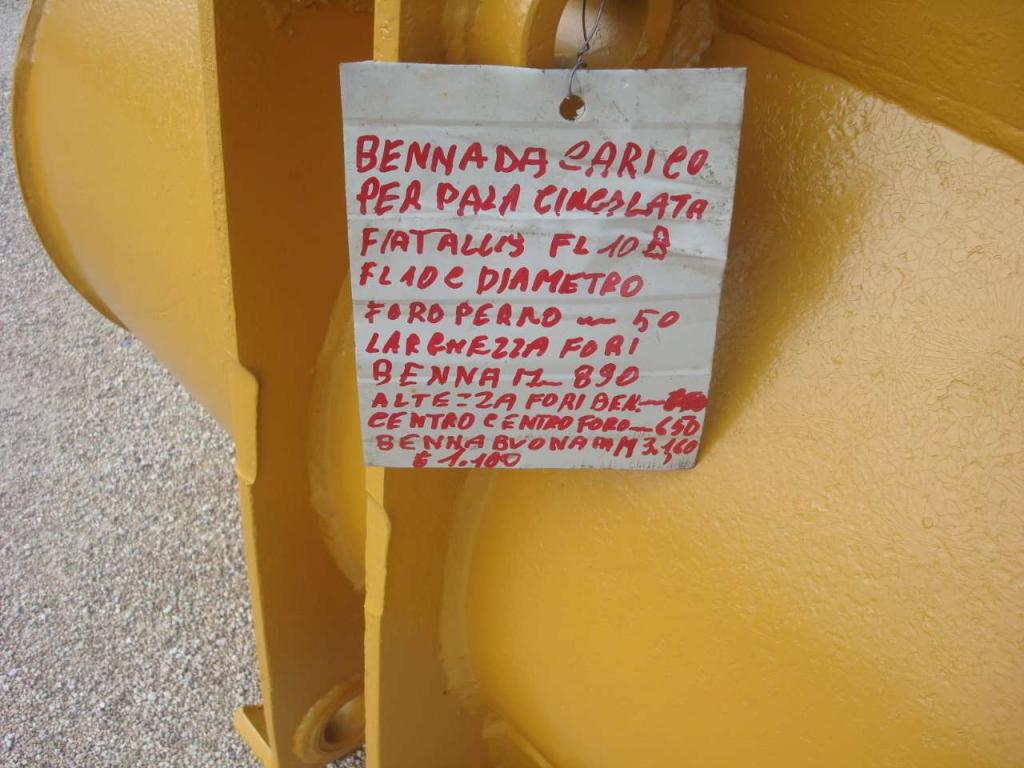 BENNA DA CARICO
PER PALA CINGOLATA
FIATALLIS FL 10 B
FL 10 C DIAMETRO
FORO PERNO — 50
LARGHEZZA FORI
BENNA M— 890
ALTEZZA FORI BEN—
CENTRO CENTRO FORO — 650
BENNA BUONA
€ 1.100